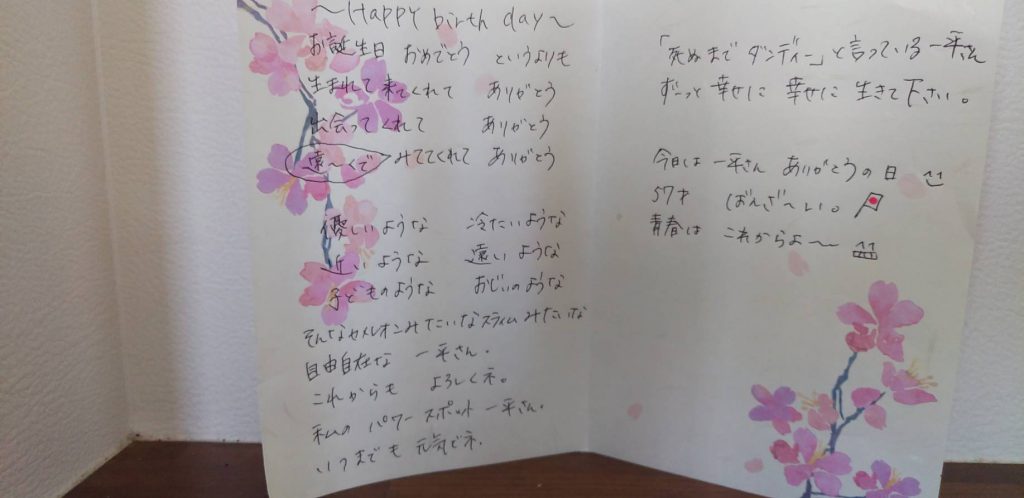 ～Happy birth day～
お誕生日 おめでとう というよりも
生まれて来てくれて ありがとう
出会ってくれて ありがとう
遠～くで みててくれて ありがとう
優しいような 冷たいような
近いような 遠いような
子どものような おじいのような
そんなカメレオンみたいなスライムみたいな
自由自在な 一平さん.
これからも よろしくネ。
私の パワースポット 一平さん.
いつまでも 元気でネ.
「死ぬまで ダンディー」と言っている一平さん
ずーっと 幸せに 幸せに 生きて下さい。
今日は 一平さん ありがとうの日
57才 ばんざ～い。
青春は これからよ～～